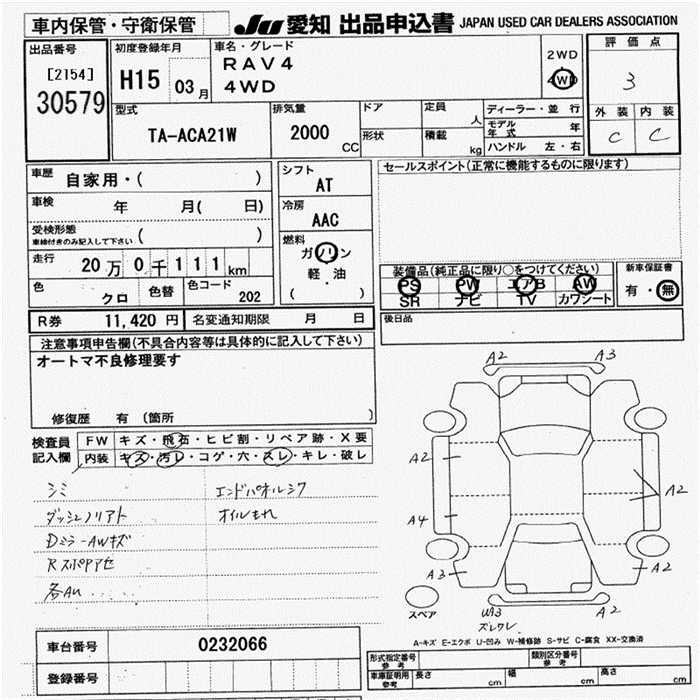 車内保管・守衛保管
JU 愛知 出品申込書 JAPAN USED CAR DEALERS ASSOCIATION
出品番号
[2154]
30579
初度登録年月
H15 03月
車名・グレード
RAV4
4WD
2WD
4WD
評価点
3
外装 内装
C C
型式
TA-ACA21W
排気量
2000
CC
ドア
定員
人
形状
積載
kg
ディーラー・並行
モデル年式 年
ハンドル 左・右
車歴 自家用・( )
車検 年 月( 日)
受検形態
車検付きのみ記入して下さい ( )
走行 20万0千111km
色 クロ 色替 色コード 202
シフト
AT
冷房
AAC
燃料
ガソリン
軽・油
( )
セールスポイント(正常に機能するものに限ります)
装備品(純正品に限り○をつけてください)
PS PW エアB AW
SR ナビ TV カワシート
新車保証書
有・無
R券 11,420円 名変通知期限 月 日
後日品
注意事項申告欄(不具合内容等は具体的に記入して下さい)
オートマ不良修理要す
修復歴 有(箇所 )
検査員記入欄
FW キズ・飛石・ヒビ割・リペア跡・X要
内装 キズ・汚レ・コゲ・穴・スレ・キレ・破レ
シミ
エンドパネルシワ
オイルもれ
DミラーAWキズ
A2 A3
A2
A4
A3
A2
A2
A2
スペア
W3
ズレワレ
A-キズ E-エクボ U-凹み W-補修跡 S-サビ C-腐食 XX-交換済
車台番号 0232066
登録番号
形式指定番号 参考
類別区分番号 参考
車庫証明用 参考 長さ cm 幅 cm 高さ cm